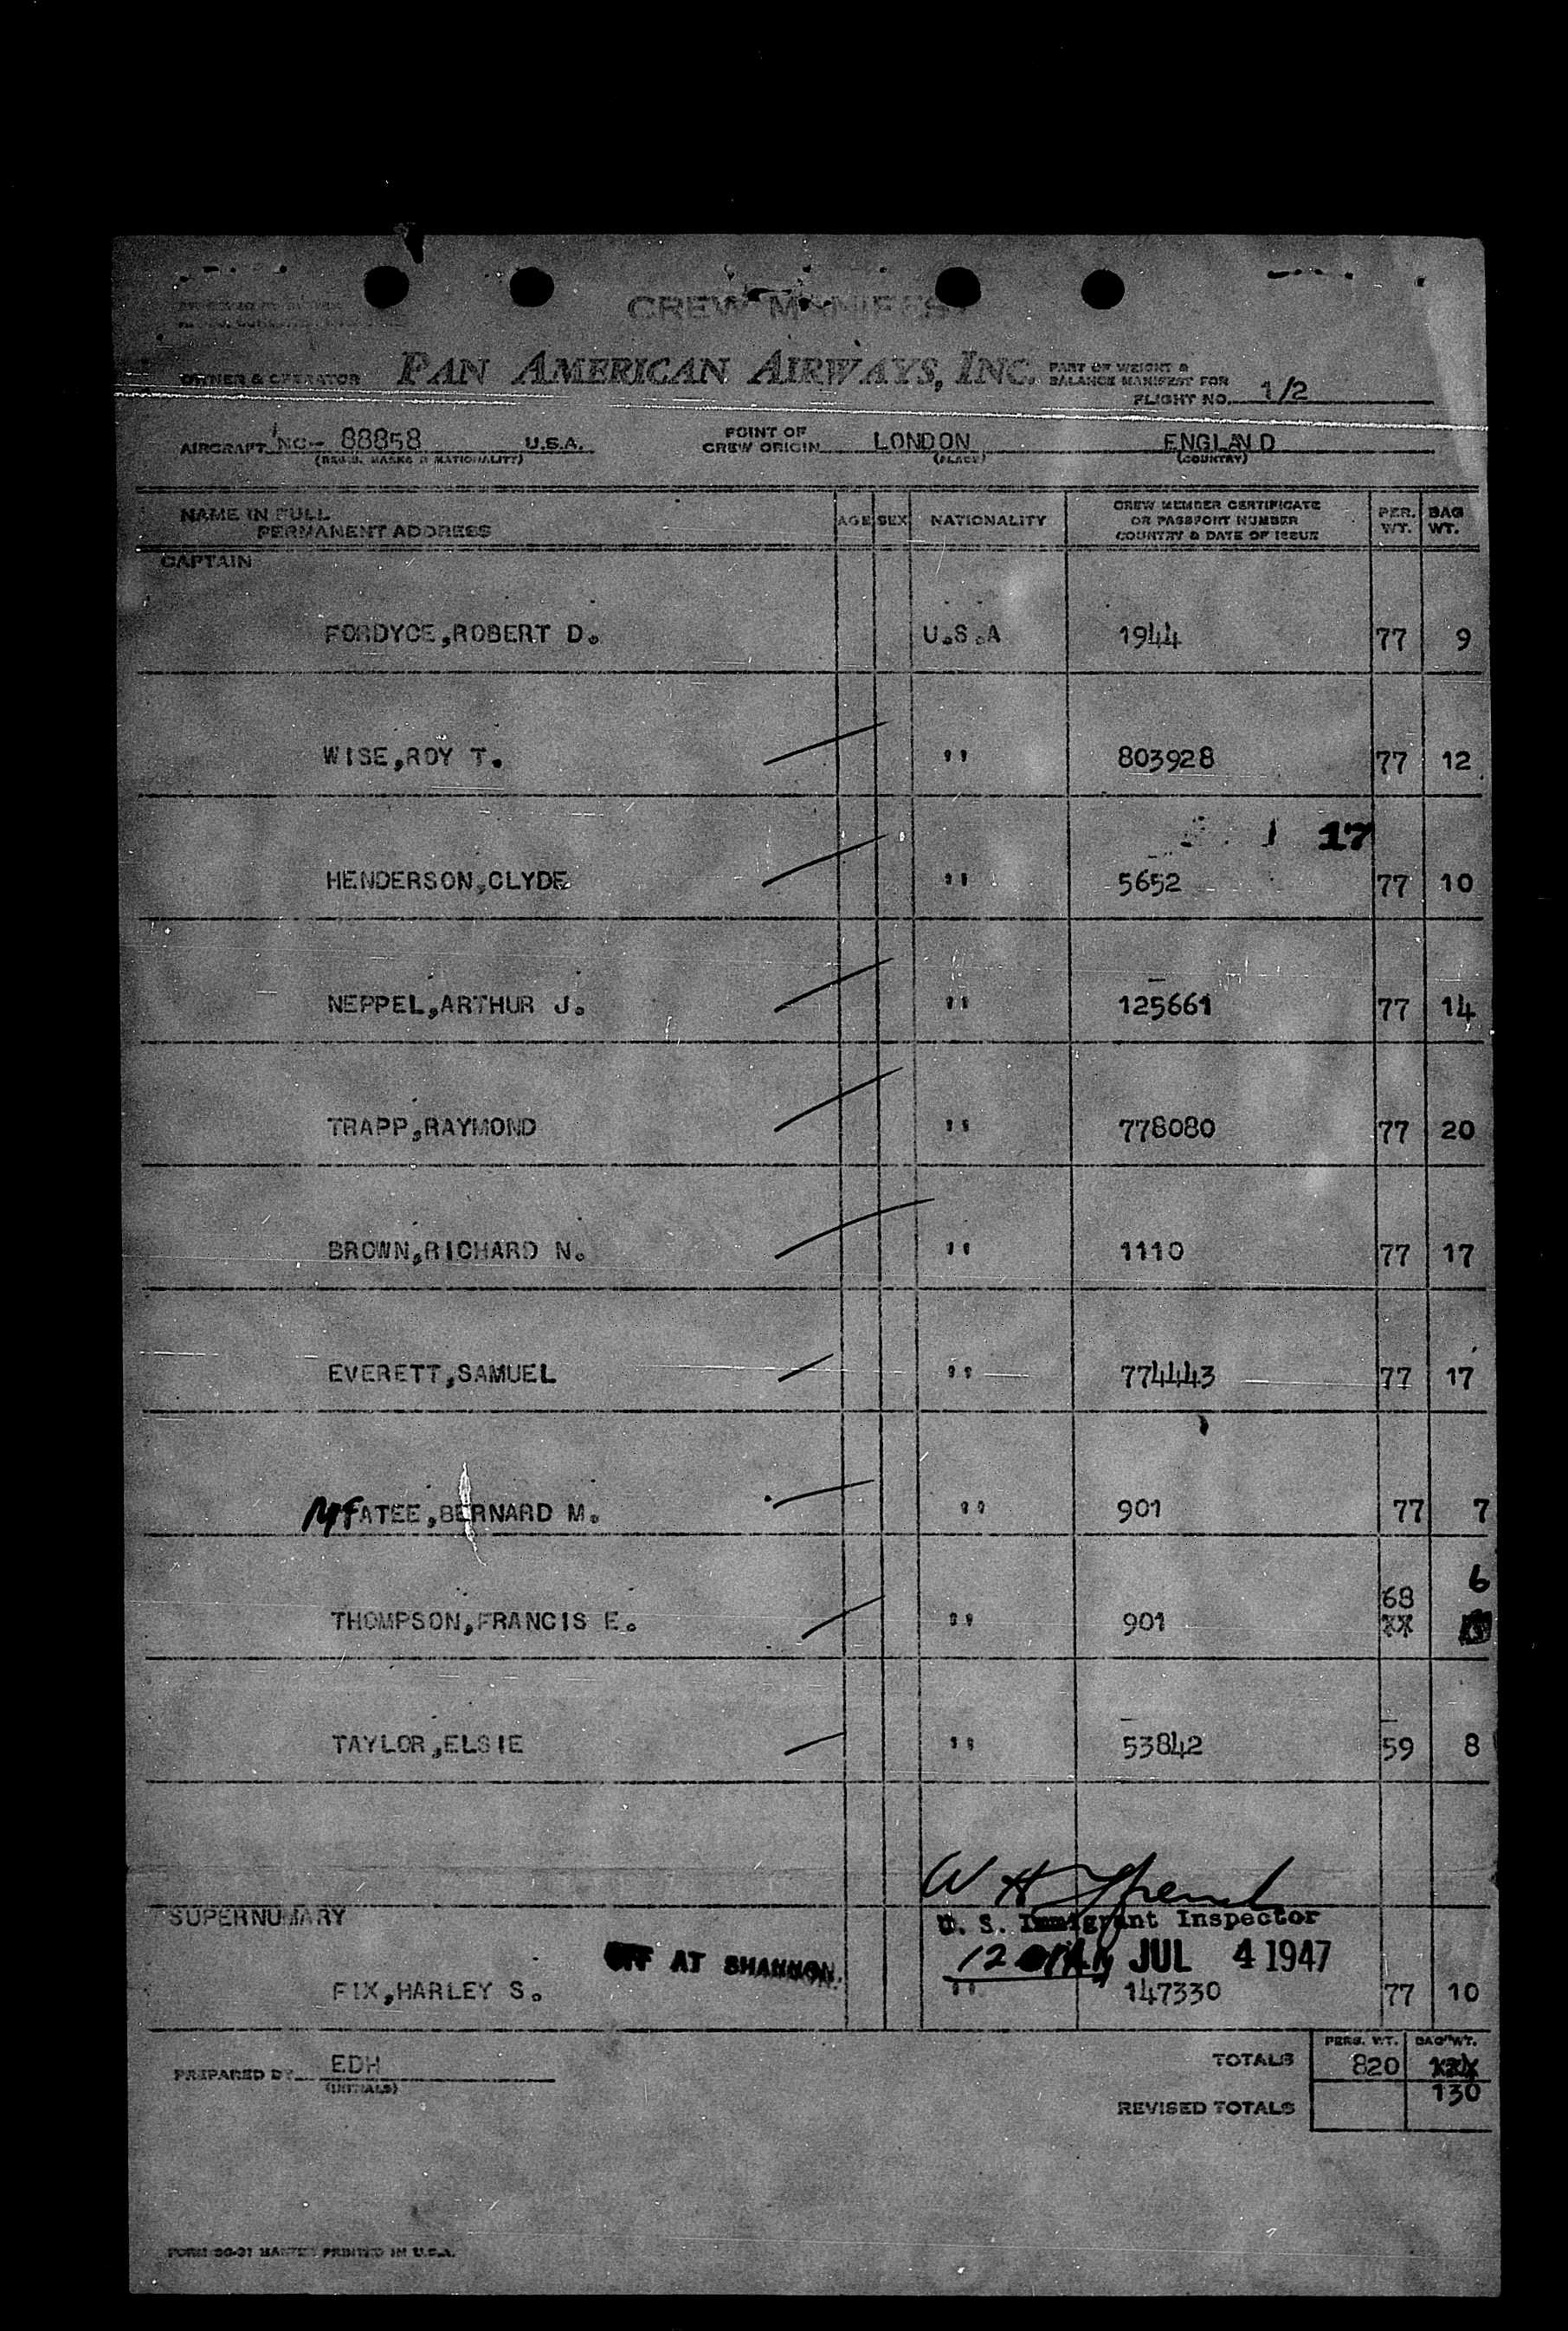 CREW MANIFEST
OWNER & OPERATOR PAN AMERICAN AIRWAYS, INC. PART OF WEIGHT &
BALANCE MANIFEST FOR
FLIGHT NO. 1/2
AIRCRAFT NC- 88858 U.S.A. POINT OF
CREW ORIGIN LONDON ENGLAND
(REGIS. MARKS & NATIONALITY) (PLACE) (COUNTRY)
NAME IN FULL
PERMANENT ADDRESS
AGE SEX NATIONALITY
CREW MEMBER CERTIFICATE
OR PASSPORT NUMBER
COUNTRY & DATE OF ISSUE
PER.
WT.
BAG
WT.
CAPTAIN
FORDYCE,ROBERT D. U.S.A 1944 77 9
WISE,ROY T. '' 803928 77 12
17
HENDERSON,CLYDE '' 5652 77 10
NEPPEL,ARTHUR J. '' 125661 77 14
TRAPP,RAYMOND '' 778080 77 20
BROWN,RICHARD N. '' 1110 77 17
EVERETT,SAMUEL '' 774443 77 17
ATEE,BERNARD M. '' 901 77 7
68 6
THOMPSON,FRANCIS E. '' 901 XX
TAYLOR,ELSIE '' 53842 59 8
W H
SUPERNUMARY
U. S. Immigrant Inspector
OFF AT SHANNON.
12 JUL 4 1947
FIX,HARLEY S. '' 147330 77 10
PERS. WT. BAG WT.
PREPARED BY EDH TOTALS 820 XXX
(INITIALS)
130
REVISED TOTALS
PRINTED IN U.S.A.